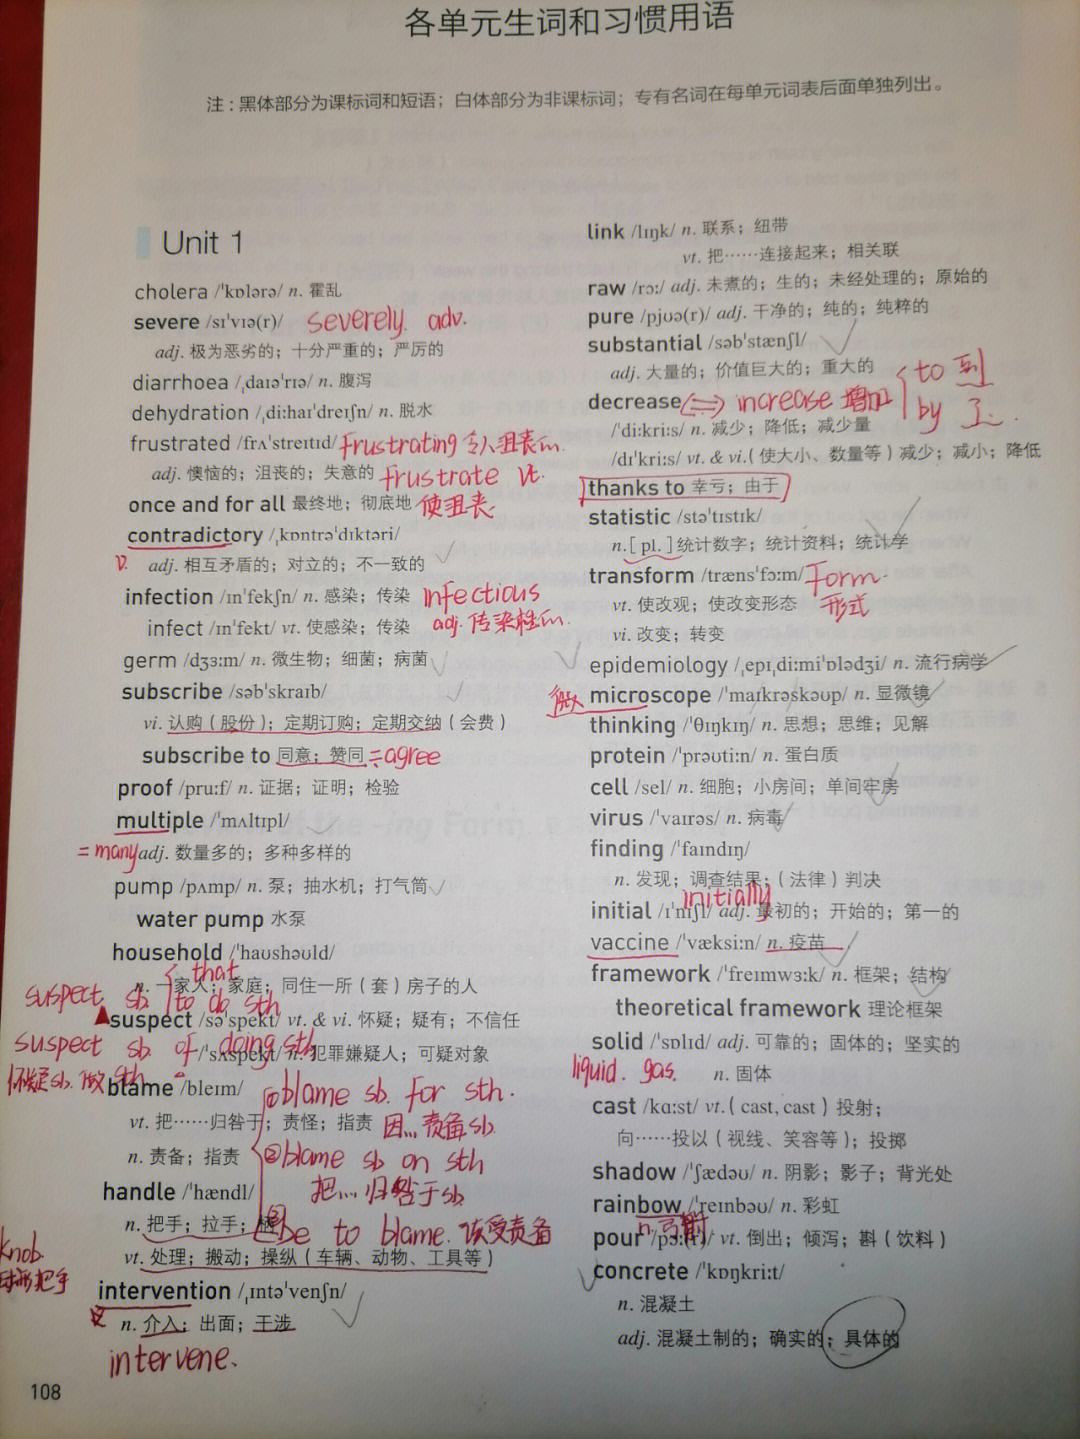 各单元生词和习惯用语
注：黑体部分为课标词和短语；白体部分为非课标词；专有名词在每单元词表后面单独列出。
Unit 1
cholera /ˈkɒlərə/ n. 霍乱
severe /sɪˈvɪə(r)/ severely. adv.
adj. 极为恶劣的；十分严重的；严厉的
diarrhoea /ˌdaɪəˈrɪə/ n. 腹泻
dehydration /ˌdiːhaɪˈdreɪʃn/ n. 脱水
frustrated /frʌˈstreɪtɪd/ frustrating 令人沮丧的.
adj. 懊恼的；沮丧的；失意的 frustrate vt.
once and for all 最终地；彻底地 使沮丧.
contradictory /ˌkɒntrəˈdɪktəri/
adj. 相互矛盾的；对立的；不一致的
infection /ɪnˈfekʃn/ n. 感染；传染 infectious
infect /ɪnˈfekt/ vt. 使感染；传染 adj. 传染性的.
germ /dʒɜːm/ n. 微生物；细菌；病菌
subscribe /səbˈskraɪb/
vi. 认购（股份）；定期订购；定期交纳（会费）
subscribe to 同意；赞同 = agree
proof /pruːf/ n. 证据；证明；检验
multiple /ˈmʌltɪpl/
= many adj. 数量多的；多种多样的
pump /pʌmp/ n. 泵；抽水机；打气筒
water pump 水泵
household /ˈhaʊshəʊld/
that
n. 一家人；家庭；同住一所（套）房子的人
suspect sb. to do sth
suspect /səˈspekt/ vt. & vi. 怀疑；疑有；不信任
suspect sb of doing sth
/ˈsʌspekt/ n. 犯罪嫌疑人；可疑对象
怀疑sb. 做 sth
blame /bleɪm/ ① blame sb. for sth.
vt. 把……归咎于；责怪；指责 因... 责备sb.
n. 责备；指责 ② blame sb on sth
handle /ˈhændl/ 把... 归咎于sb.
n. 把手；拉手；柄 ③ be to blame. 该受责备
knob.
球形把手
vt. 处理；搬动；操纵（车辆、动物、工具等）
intervention /ˌɪntəˈvenʃn/
n. 介入；出面；干涉
intervene.
108
link /lɪŋk/ n. 联系；纽带
vt. 把……连接起来；相关联
raw /rɔː/ adj. 未煮的；生的；未经处理的；原始的
pure /pjʊə(r)/ adj. 干净的；纯的；纯粹的
substantial /səbˈstænʃl/
adj. 大量的；价值巨大的；重大的 to 到
decrease ⟺ increase 增加 by 了.
/ˈdiːkriːs/ n. 减少；降低；减少量
/dɪˈkriːs/ vt. & vi.（使大小、数量等）减少；减小；降低
thanks to 幸亏；由于
statistic /stəˈtɪstɪk/
n.[ pl. ]统计数字；统计资料；统计学
transform /trænsˈfɔːm/ form.
vt. 使改观；使改变形态 形式
vi. 改变；转变
epidemiology /ˌepɪˌdiːmiˈɒlədʒi/ n. 流行病学
微 microscope /ˈmaɪkrəskəʊp/ n. 显微镜
thinking /ˈθɪŋkɪŋ/ n. 思想；思维；见解
protein /ˈprəʊtiːn/ n. 蛋白质
cell /sel/ n. 细胞；小房间；单间牢房
virus /ˈvaɪrəs/ n. 病毒
finding /ˈfaɪndɪŋ/
n. 发现；调查结果；（法律）判决
initially
initial /ɪˈnɪʃl/ adj. 最初的；开始的；第一的
vaccine /ˈvæksiːn/ n. 疫苗
framework /ˈfreɪmwɜːk/ n. 框架；结构
theoretical framework 理论框架
solid /ˈsɒlɪd/ adj. 可靠的；固体的；坚实的
liquid. gas. n. 固体
cast /kɑːst/ vt.（ cast, cast ）投射；
向……投以（视线、笑容等）；投掷
shadow /ˈʃædəʊ/ n. 阴影；影子；背光处
rainbow /ˈreɪnbəʊ/ n. 彩虹
pour /pɔː(r)/ vt. 倒出；倾泻；斟（饮料）
concrete /ˈkɒŋkriːt/
n. 混凝土
adj. 混凝土制的；确实的；具体的